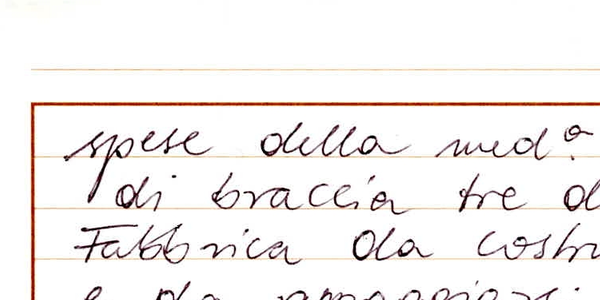 spese della med.ª
di braccia tre d
Fabbrica da costr
e da appoggiarsi